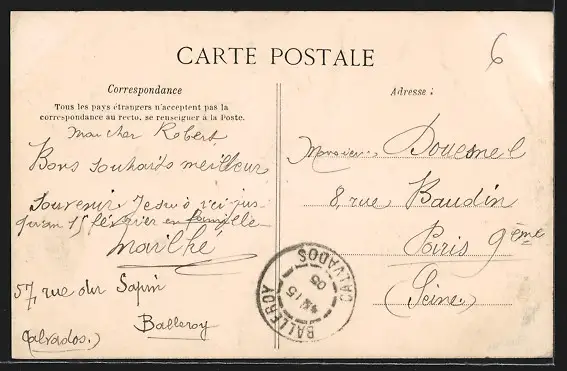 6
CARTE POSTALE
Correspondance
Tous les pays étrangers n'acceptent pas la
correspondance au recto, se renseigner à la Poste.
Mon cher Robert
Bons souhaits meilleur
souvenir. Je suis ici jus
qu'au 15 février en famille
57, rue du Sapin
Balleroy
Calvados.)
Adresse :
Monsieur Douesnel
8, rue Baudin
Paris 9ème
(Seine.)
BALLEROY
15
05
CALVADOS